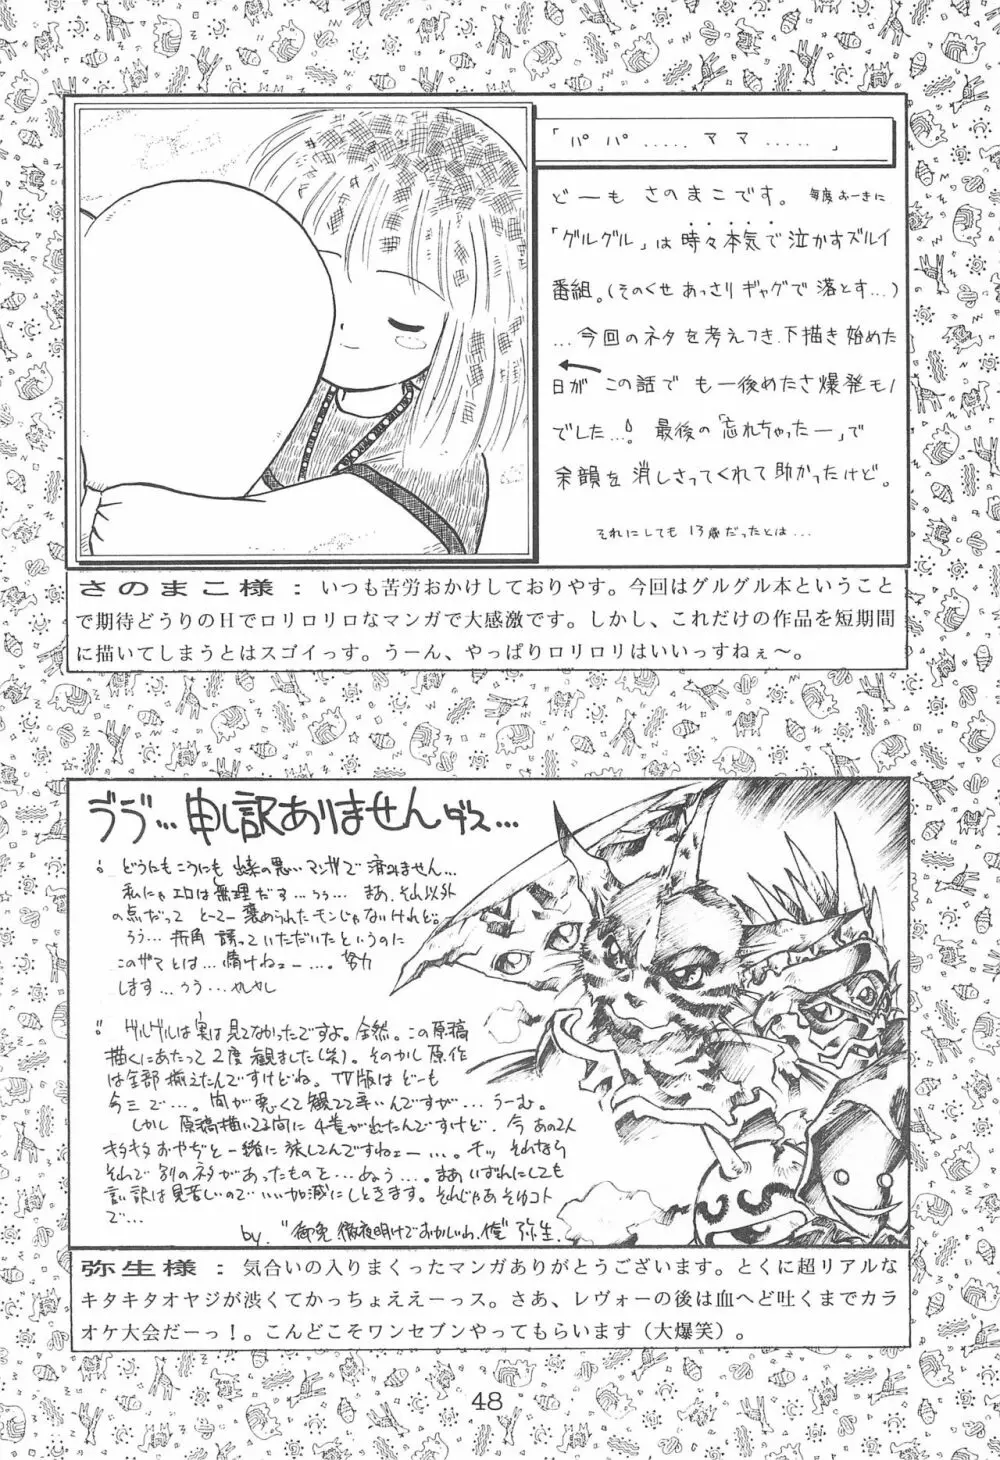 「パパ.....ママ.....」
どーも さのまこです。 毎度おーきに
「グルグル」は時々本気で泣かすズルイ
番組。(そのくせあっさりギャグで落とす...)
...今回のネタを考えつき、下描き始めた
日が この話で も一後めたさ爆発モノ
でした...。 最後の「忘れちゃったー」で
余韻を 消しさってくれて助かったけど。
それにしても 13歳だったとは...
さのまこ様：いつも苦労おかけしておりやす。今回はグルグル本ということ
で期待どうりのHでロリロリロなマンガで大感激です。しかし、これだけの作品を短期間
に描いてしまうとはスゴイっす。うーん、やっぱりロリロリはいいっすねぇ〜。
ゔゔ...申し訳ありませんダス...
どうにもこうにも 出来の悪いマンガで済みません...
私にゃエロは無理だす...うぅ... まあ、それ以外
の点だって とてー 褒められたモンじゃないけれど。
うう... 折角 誘っていただいたというのに
このザマとは...情けねェー...。努力
します...うう...
グルグルは実は見てなかったですよ。全然。この原稿
描くにあたって2度観ました(笑)。そのかし原作
は全部揃えたんですけどね。TV版はどーも
今三で...。間が悪くて観てて辛いんですが...うーむ。
しかし原稿描いてる間に4巻がでたんですけど、今あの2人
キタキタおやぢと一緒に旅してんですねェー...。そっ それなら
それで別のネタがあったものを...ぬぅ...。まあいずれにしても
言い訳は見苦しいのでいい加減にしときます。そんじゃあそゆコト
で...
by. "御免 徹夜明けでおかしいわ、俺" 弥生.
弥生様：気合いの入りまくったマンガありがとうございます。とくに超リアルな
キタキタオヤジが渋くてかっちょええーっス。さあ、レヴォーの後は血へど吐くまでカラ
オケ大会だーっ!。こんどこそワンセブンやってもらいます（大爆笑）。
48